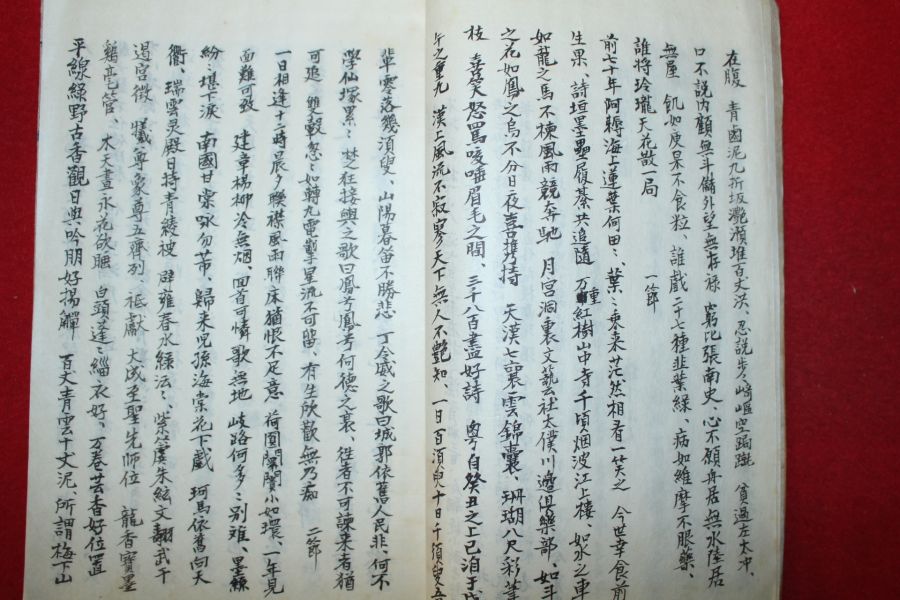 在腹 青國泥九折坂灔澦堆百丈汯、忍說步崎嶇空蜀蹴 貧過左太冲、
口不說內顧無斗儲外望無存祿 窮比張南史、心不願舟居無水陸居
無屋 飢如庾杲不食粒、誰戱二十七種韭葉綠、病如維摩不眼藥、
誰將玲瓏天花散一局 一節
前七十年阿耨海上蓮葉何田〻、葉〻乘來茫然相看一笑之 今世幸食前
生果、詩垣墨壘履綦共追隨 萬重紅樹山中寺千頃烟波江上樓、如水之車
如龍之馬不楝風雨競奔馳 月宮洞裏文藝社太僕川邊俱樂部、如斗
之花如鳳之鳥不分日夜喜携持 天漢七襄雲錦囊、珊瑚八尺彩筆
枝 喜笑怒罵咳唾眉毛之間、三千八百盡好詩 粤自癸丑之上巳洎于戊
午之重九 漢上風流不寂寥天下無人不艶知 一日百須臾十日千須臾吾
輩零落幾須臾、山陽暮笛不勝悲 丁令威之歌曰城郭依舊人民非、何不
學仙塚累〻 楚狂接輿之歌曰鳳兮鳳兮何德之衰、徃者不可諫来者猶
可追 雙轂忽〻如轉九電掣星流不可留、有生欣歡無乃痴 二節
一日相逢十二時晨夕聯襟風雨聯床猶恨不足意 荷圓闌闠小如環、一年見
面難可致 建章楊柳冷無烟、回首可憐歌撫地 岐路何多〻別难、墨絲
紛〻堪下淚 南國甘棠咏勿芾、歸来児孫海棠花下戱 珂馬依舊向天
衢、瑞雲灵殿日持青綾被 辟雍春水綠沄〻、紫蘌朱絃文翻武干
遏宮徵 犧尊象尊五齊列、祗獻大成至聖先師位 龍香寶墨
鷄亳管、木天晝永花欲睡 白頭蓬〻緇衣好、万卷芸香好位置
平線綠野古香觀日與吟朋好揚觶 百丈青雲千丈泥、所謂梅下山